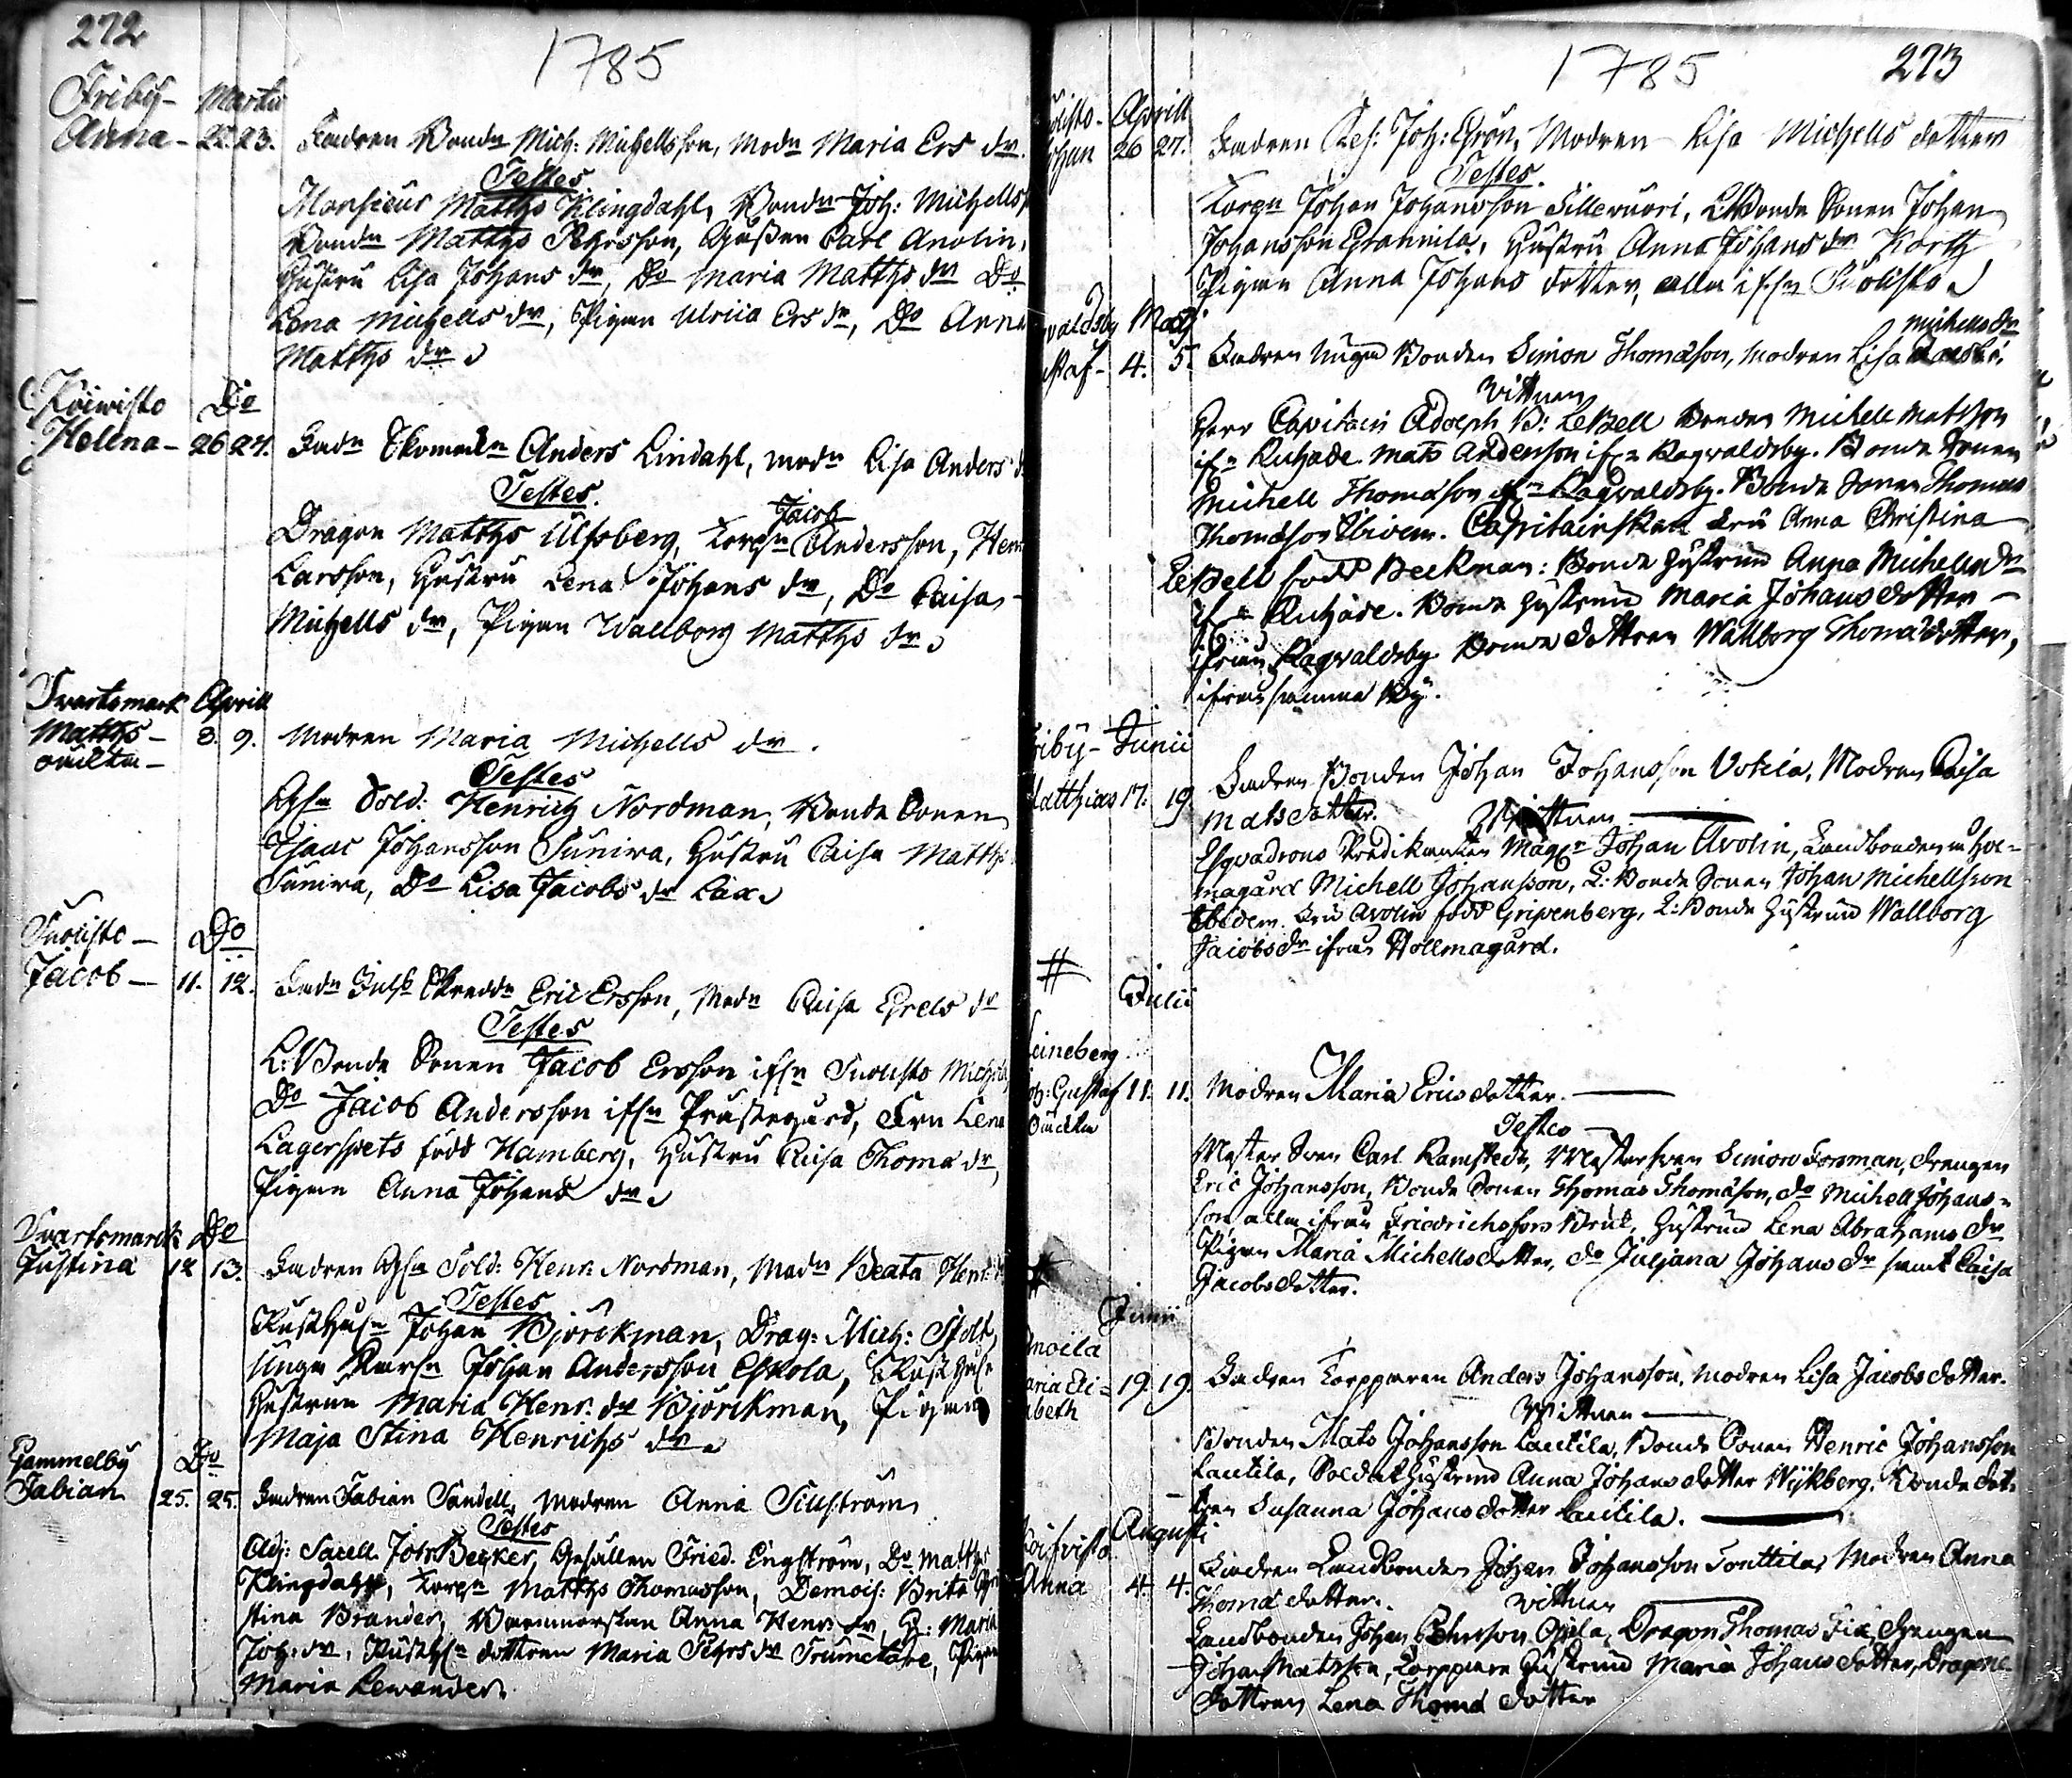 272
1785
Friby- Martii
Anna - 22. 23. Fadren Bondn Mich: Michellsson, Modn Maria Ers dr.
Testes
Monsieur Matths Klingdahl, Bondn Joh: Michells
Bondn Matths Pehrsson, Carl Avolin,
Hustru Lisa Johans dr, Do Maria Matths dr Do
Lena Michells dr, Pigan Ulrica Ers dr, Do Anna
Matths dr
Koiwisto Do
Helena - 26 27. Fadn Anders Lindahl, modn Lisa Anders
Testes
Jacob
Dragon Matths Ulfsberg, Torpn Andersson, Henr
Larsson, Hustru Lena Johans dr, Do Caisa
Michells dr, Pigan Wallborg Matths dr
Svartsmark Aprill
Matths - 8. 9. Modren Maria Michells dr.
oäckta -
Testes
Sold: Henrich Nordman, Bonde Sonen
Isaac Johansson Sunira, Hustru Caisa Matths
Sunira, Do Lisa Jacobs dr Lax
Suolisto - Do
Jacob - 11. 12. Fadn Eric Ersson, Modn Caisa Grels dr
Testes
L: Bonde Sonen Jacob Ersson ifrn Suolisto
Do Jacob Andersson ifrn Prästegård, Fru Lena
Lagerspets född Hamberg, Hustru Caisa Thoma dr,
Pigan Anna Johans dr
Svartsmarck Do
Justina 12 13. Fadren Sold: Henr: Nordman, Modn Beata Henr:
Testes
Rusth Johan Björckman, Drag: Mich: Stolt,
Unga Johan Andersson Eskola, Rusth
Hustrun Maria Henr. dr Björckman, Pigan
Maja Stina Henrichs dr
Gammelby Do
Fabian 25. 25. Fadren Fabian Sandell, modren Anna Siustrom
Testes
Adj: Sacell. Joh: Becker, Gesällen Fried. Engström, Do Matths
Klingdahl, Torpn Matths Thomasson, Demois: Brita
stina Brander, Anna Henr dr, H: Maria
Joh: dr, Rusth dottren Maria Pehrs dr Trumetare, Pigan
Maria Lewander.
1785 273
olisto- Aprill
ohan 26 27. Fadren Joh: Grön, Modren Lisa Michells dotter
Testes.
Torpn Johan Johansson Sillevuori, L: Bonde Sonen Johan
Johansson Grannila, Hustru Anna Johans dr Korth
Pigan Anna Johans dotter, alla ifrn Suolisto
valdsby Maji
staf- 4. 5. Fadren Unga Bonden Simon Thomasson, modren Lisa Michells dr
Vittnen
Herr Capitain Adolph B: LeBell Bonden Michell Matsson
ifrn Ruhade. Mats Andersson ifrn Ragvaldsby. Bonde Sonen
Michell Thomasson ifrn Ragvaldsby. Bonde Sonen Thomas
Thomasson ibidem. Capitainskan Fru Anna Christina
LeBell född Beckman: Bonde Hustrun Anna Michells dr
ifrn Ruhade. Bonde Hustrun Maria Johans dotter
ifrån Ragvaldsby Bonde dottren Wallborg Thomadotter,
ifrån samma By.
riby- Junii
Matthias 17. 19. Fadren Bonden Johan Johansson Uotila, Modren Caisa
Mats dotter. Vittnen
Esqvadrons Predikanten Magr Johan Avolin, Landbonden
magård Michell Johansson, L: Bonde Sonen Johan Michellsson
ibidem. Fru Avolin född Gripenberg, L: Bonde Hustrun Wallborg
Jacobs dr ifrån Hollmagård.
#
Julii
eineberg
oh: Gustaf 11. 11. Modren Maria Erics dotter.
oäckta
Testes
Mäster Sven Carl Ramstedt, Mästersven Simon Forsman, drengen
Eric Johansson, Bonde Sonen Thomas Thomasson, do Michell Johans=
son alla ifrån Friedrichsfors Bruk, Hustrun Lena Abrahams dr
Pigan Maria Michells dotter, do Juljana Johans dr samt Caisa
Jacobs dotter.
#
Junii
noila
aria Eli= 19. 19. Fadren Torpparen Anders Johansson, modren Lisa Jacobs dotter.
abeth
Vittnen
Bonden Mats Johansson Lautila, Bonde Sonen Henric Johansson
Lautila, Soldat Hustrun Anna Johans dotter Wijkberg. Bonde dot=
tren Susanna Johans dotter Lautila.
Koifvisto Augusti
Anna 4. 4. Fadren Landbonden Johan Johansson Tonttila, Modren Anna
Thoma dotter. Vittnen
Landbonden Johan Dragon Thomas Fix, drengen
Johan Matsson, Torppare Hustrun Maria Johans dotter, Dragone
dottren Lena Thoma dotter